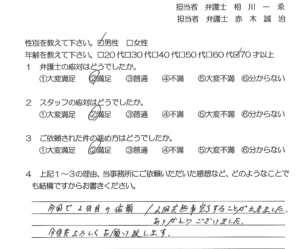 担当者 弁護士 相 川 一 ゑ
担当者 弁護士 赤 木 誠 治
性別を教えて下さい。☑男性 □女性
年齢を教えて下さい。□20代□30代□40代□50代□60代☑70才以上
1 弁護士の応対はどうでしたか。
①大変満足 ②満足 ③普通 ④不満 ⑤大変不満 ⑥分からない
2 スタッフの応対はどうでしたか。
①大変満足 ②満足 ③普通 ④不満 ⑤大変不満 ⑥分からない
3 ご依頼された件の進め方はどうでしたか。
①大変満足 ②満足 ③普通 ④不満 ⑤大変不満 ⑥分からない
4 上記1~3の理由、当事務所にご依頼いただいた感想など、どのようなことで
も結構ですからお書きください。
今回で2回目の依頼 することが出来ました。
ありがとうございました。
今後共よろしくお願い致します。